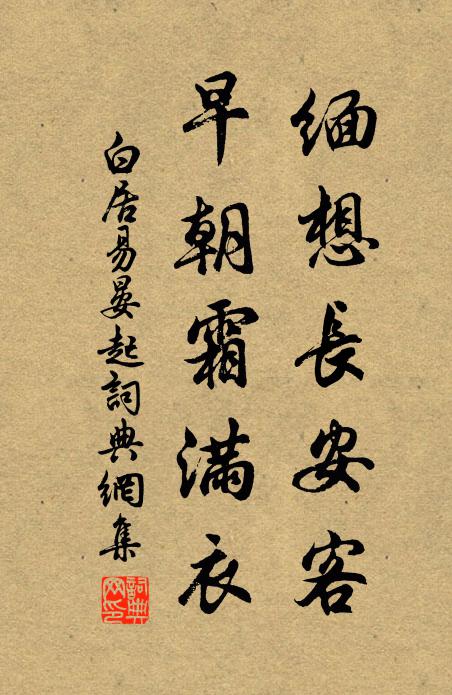 緬想長安客
早朝霜滿衣
白居易晏起詞典網集
詞典網印